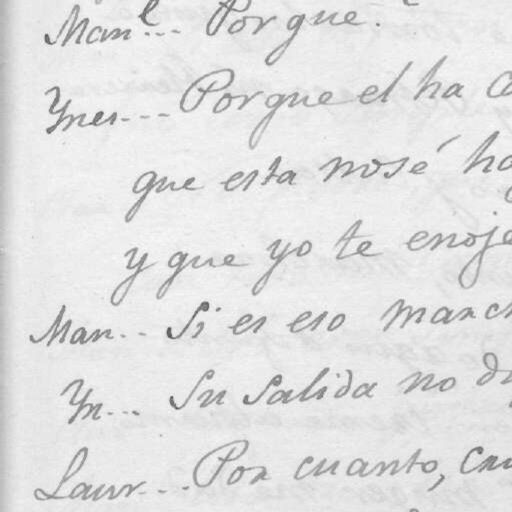 Man.l... Porque.
Ynes... Porque el ha
que esta nosé
y que yo te enoje
Man... Si es eso
Yn... Su salida no
Laur... Por cuanto,